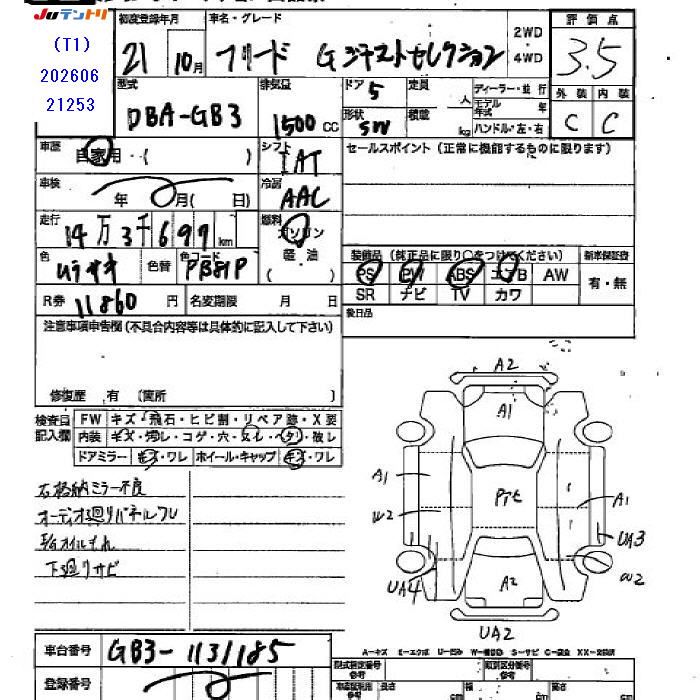 Juテントリ
(T1)
202606
21253
初度登録年月
21 10月
車名・グレード
フリード Gジャストセレクション
2WD
4WD
評価点
3.5
外装 内装
C C
型式
DBA-GB3
排気量
1500 CC
ドア
5
形状
SW
定員
人
積載
kg
ディーラー・並行
モデル年式 年
ハンドル・左・右
車歴
自家用・( )
シフト
IAT
セールスポイント (正常に機能するものに限ります)
車検
年 月( 日)
冷房
AAC
走行
14万3千699 km
燃料
ガソリン
軽油
( )
色
ムラサキ
色替
色コード
PB81P
装備品 (純正品に限り○をつけてください)
新車保証書
PS PW ABS エアB AW
有・無
SR ナビ TV カワ
R券 11860 円
名変期限 月 日
後日品
注意事項申告欄(不具合内容等は具体的に記入して下さい)
修復歴 有 (箇所 )
検査員記入欄
FW キズ・飛石・ヒビ割・リペア跡・X要
内装 キズ・汚レ・コゲ・穴・スレ・ヘタリ・破レ
ドアミラー キズ・ワレ ホイール・キャップ キズ・ワレ
右格納ミラー不良
オーディオ廻りパネルワレ
下廻りサビ
A2
A1
A1
W2
Pたち
A1
UA3
W2
UA4
A2
UA2
車台番号
GB3-1131185
登録番号
A-キズ E-エクボ U-凹み W-補修跡 S-サビ C-腐食 XX-交換済
型式指定番号
参考
類別区分番号
参考
長さ
cm
幅
cm
高さ
cm